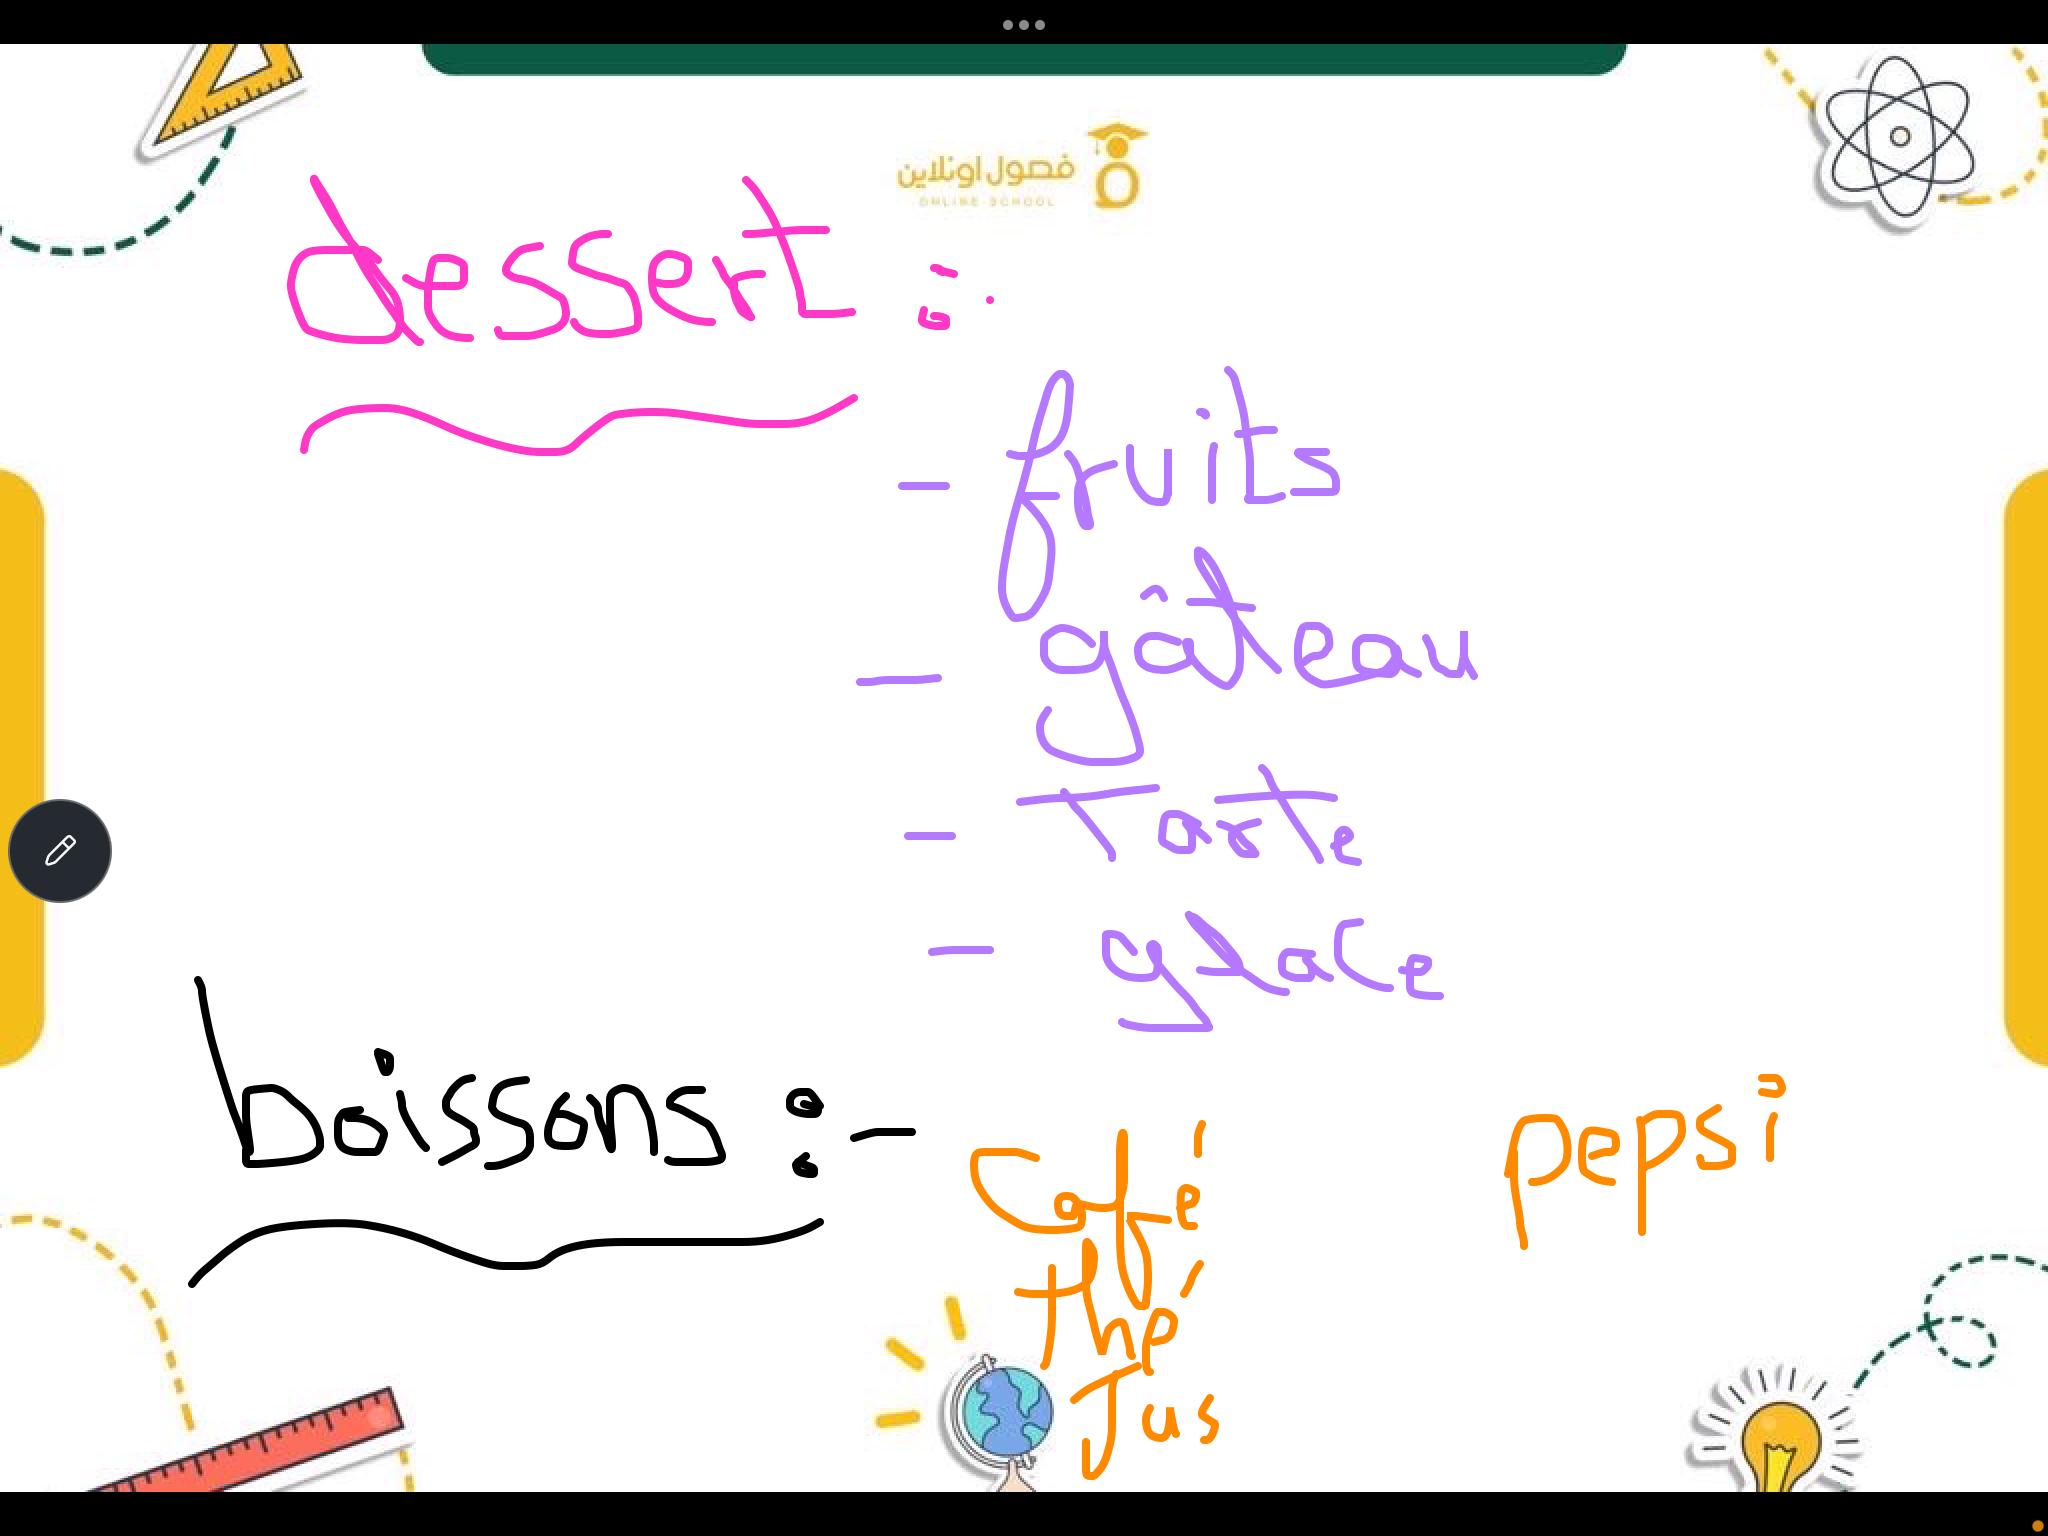 فصول اونلاين
ONLINE SCHOOL
dessert :
- fruits
- gâteau
- Tarte
- glace
boissons : - Café pepsi
thé
Jus